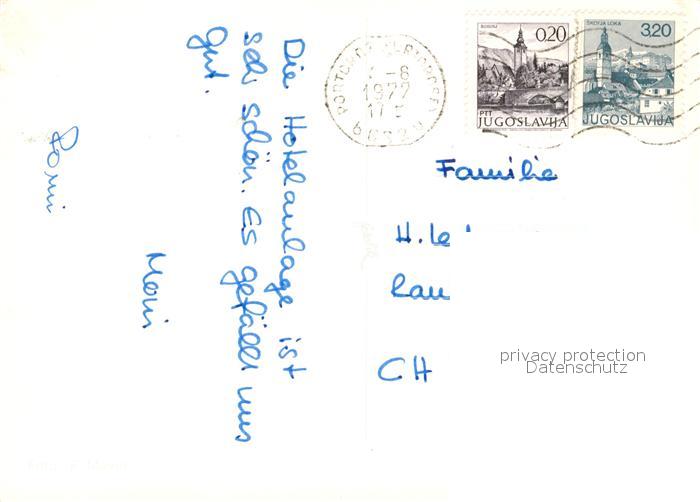 Die Hotelanlage ist
seh schön. Es gefällt uns
gut.
Romi
Moni
1977
BOHINJ
0,20
PTT
JUGOSLAVIJA
ŠKOFJA LOKA
3,20
JUGOSLAVIJA
Familie
H. Le
Rau
CH
privacy protection
Datenschutz